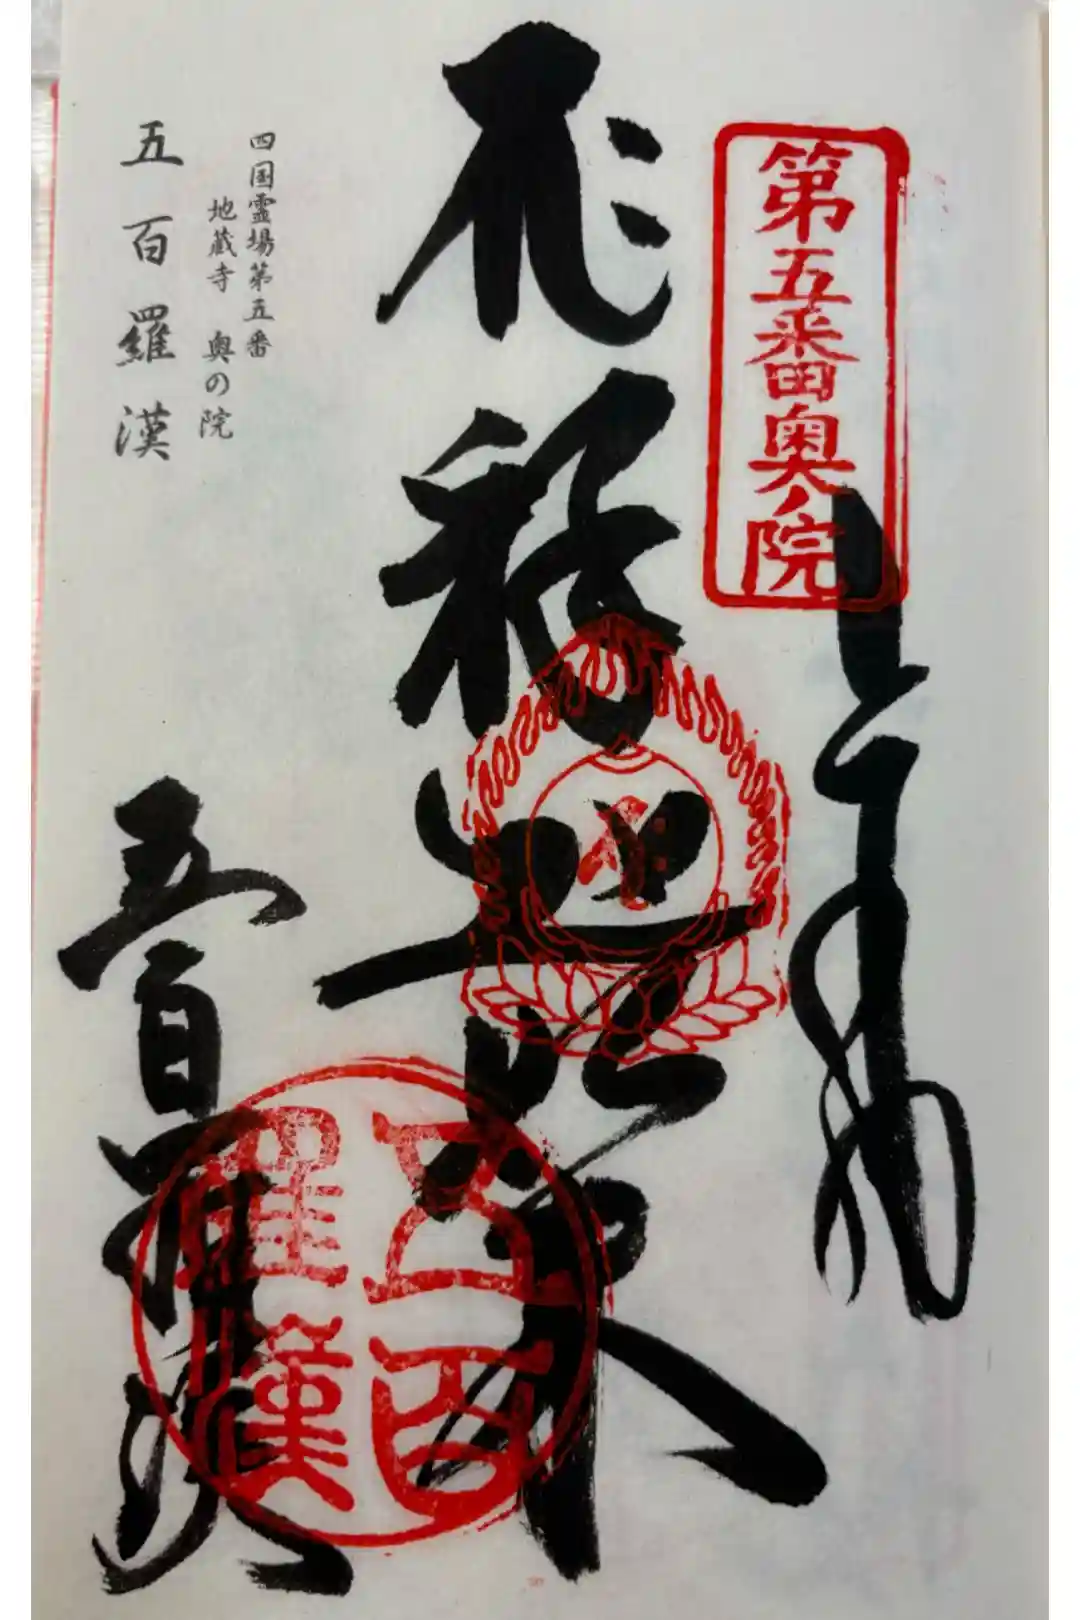 第五番奥ノ院
奉納
弥勒如来
五百羅漢
五百
羅漢
四国霊場第五番
地蔵寺 奥の院
五百羅漢